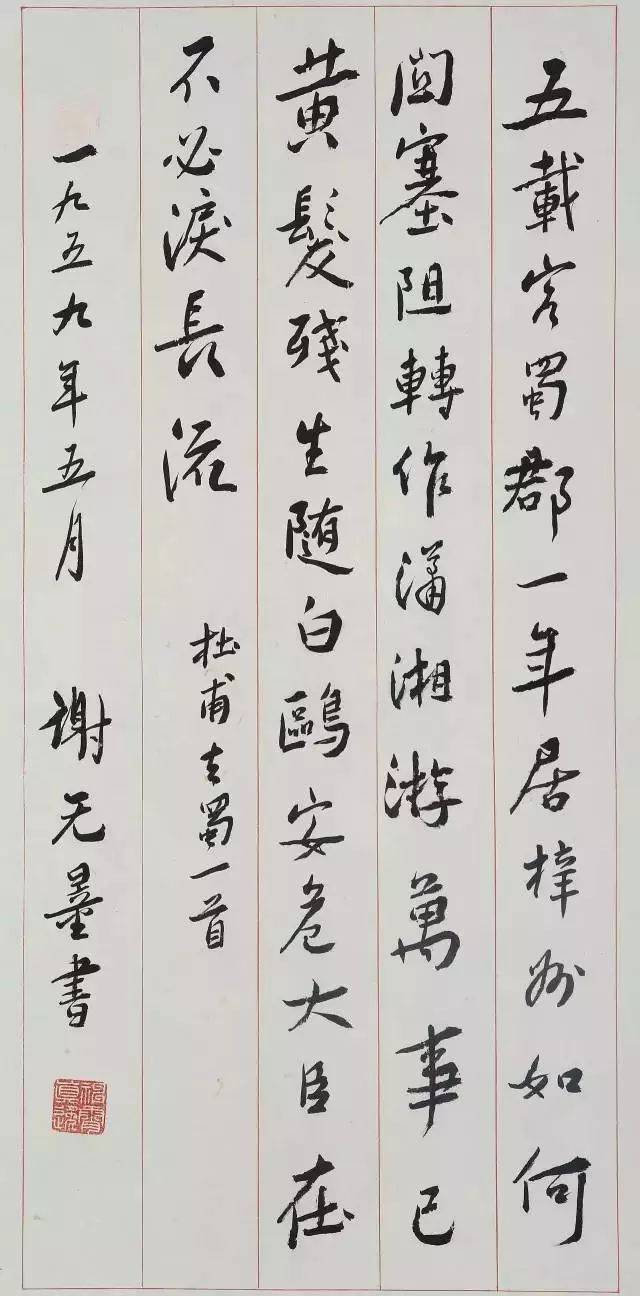 五載客蜀郡一年居梓州如何
関塞阻轉作瀟湘游萬事已
黄髮殘生随白鷗安危大臣在
不必淚長流
杜甫去蜀一首
一九五九年五月 謝无量書